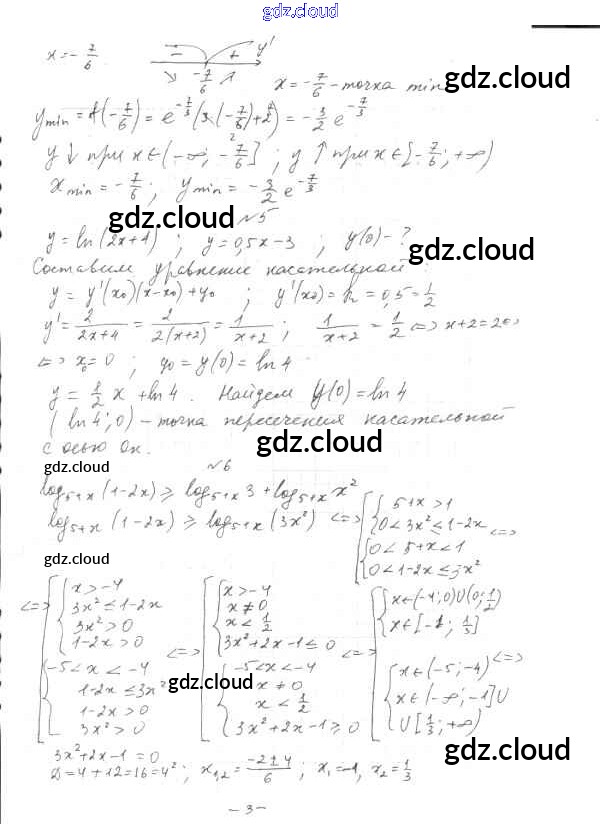 gdz.cloud
x = -7/6. - + y'
-7/6 x = -7/6 - точка min
gdz.cloud
y min = f(-7/6) = e^(-7/3) (3·(-7/6)+2) = -3/2 e^(-7/3)
y ↓ при x ∈ (-∞; -7/6]; y ↑ при x ∈ [-7/6; +∞)
x min = -7/6; y min = -3/2 e^(-7/3)
gdz.cloud
№5
y = ln(2x+4); y = 0,5x-3; y(0) - ?
gdz.cloud
Составим уравнение касательной
y = y'(x₀)(x-x₀)+y₀; y'(x₀) = k = 0,5 = 1/2
y' = 2/(2x+4) = 2/(2(x+2)) = 1/(x+2); 1/(x+2) = 1/2 <=> x+2=2 <=>
gdz.cloud gdz.cloud
<=> x₀ = 0; y₀ = y(0) = ln 4.
y = 1/2 x + ln 4. Найдем y(0) = ln 4
(ln 4; 0) - точка пересечения касательной
с осью Ox.
gdz.cloud
gdz.cloud №6
log₅₊ₓ(1-2x) ≥ log₅₊ₓ 3 + log₅₊ₓ x²
log₅₊ₓ(1-2x) ≥ log₅₊ₓ(3x²) <=> [ { 5+x>1
0<3x²≤1-2x <=>
{ 0<5+x<1
0<1-2x≤3x²
gdz.cloud
<=> [ { x>-4
3x²≤1-2x
3x²>0
1-2x>0
{ -5<x<-4
1-2x≤3x²
1-2x>0
3x²>0
<=> [ { x>-4
x≠0
x<1/2
3x²+2x-1≤0
{ -5<x<-4
x≠0
x<1/2
3x²+2x-1≥0
<=> [ { x∈(-4;0)U(0;1/2)
x∈[-1; 1/3]
{ x∈(-5;-4) <=>
x∈(-∞;-1]U
U[1/3;+∞)
gdz.cloud
gdz.cloud
3x²+2x-1=0
D=4+12=16=4²; x₁,₂ = (-2±4)/6; x₁=-1, x₂=1/3
- 3 -